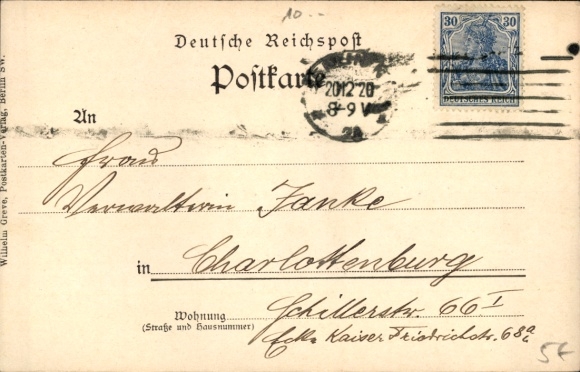 10.--
30 30
DEUTSCHES REICH
Deutsche Reichspost
Postkarte
20.12.20
8-9 V
An
Frau
Verwalterin Janke
in Charlottenburg
Wohnung Schillerstr. 66 I
(Straße und Hausnummer) Ecke Kaiser Friedrichstr. 68a
5€
Wilhelm Greve, Postkarten-Verlag, Berlin SW.